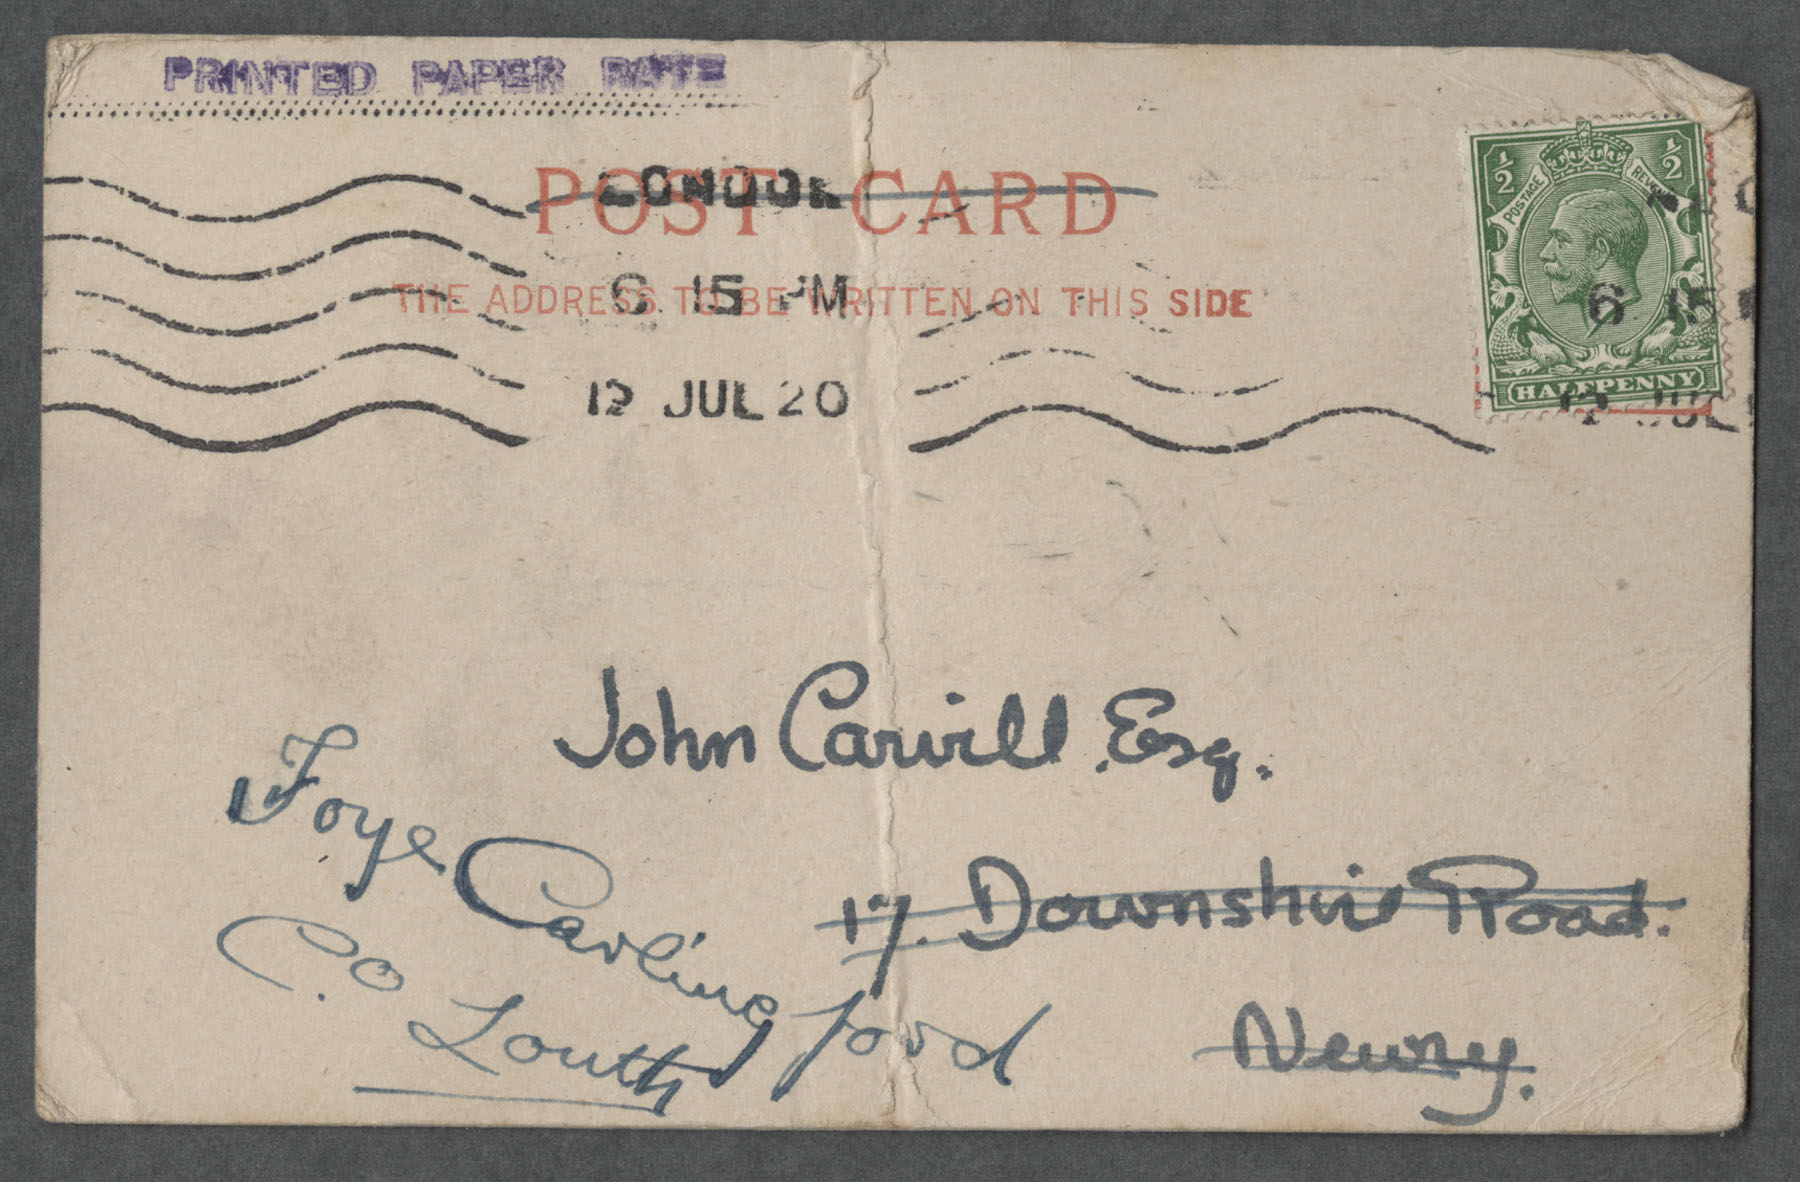 PRINTED PAPER RATE
POST CARD
LONDON
THE ADDRESS TO BE WRITTEN ON THIS SIDE
6 15 PM
12 JUL 20
½ ½
POSTAGE REVENUE
6 15
HALFPENNY
12 JUL
John Carvill Esq.
17. Downshire Road.
Newry.
Foye Carlingford
Co Louth